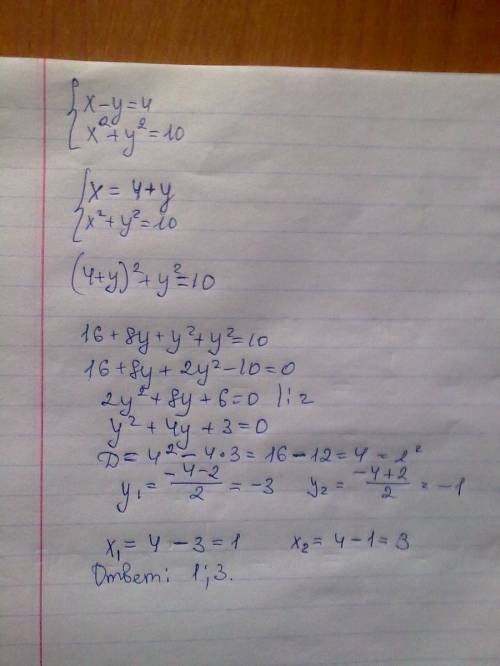 { x − y = 4
{ x² + y² = 10
{ x = 4 + y
{ x² + y² = 10
(4+y)² + y² = 10
16 + 8y + y² + y² = 10
16 + 8y + 2y² − 10 = 0
2y² + 8y + 6 = 0 |: 2
y² + 4y + 3 = 0
D = 4² − 4·3 = 16 − 12 = 4 = 2²
y₁ = (−4−2)/2 = −3 y₂ = (−4+2)/2 = −1
x₁ = 4 − 3 = 1 x₂ = 4 − 1 = 3
Ответ: 1; 3.